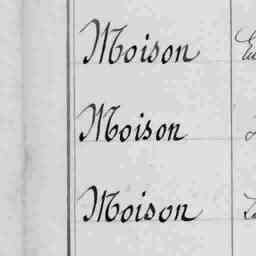 Moison
Moison
Moison